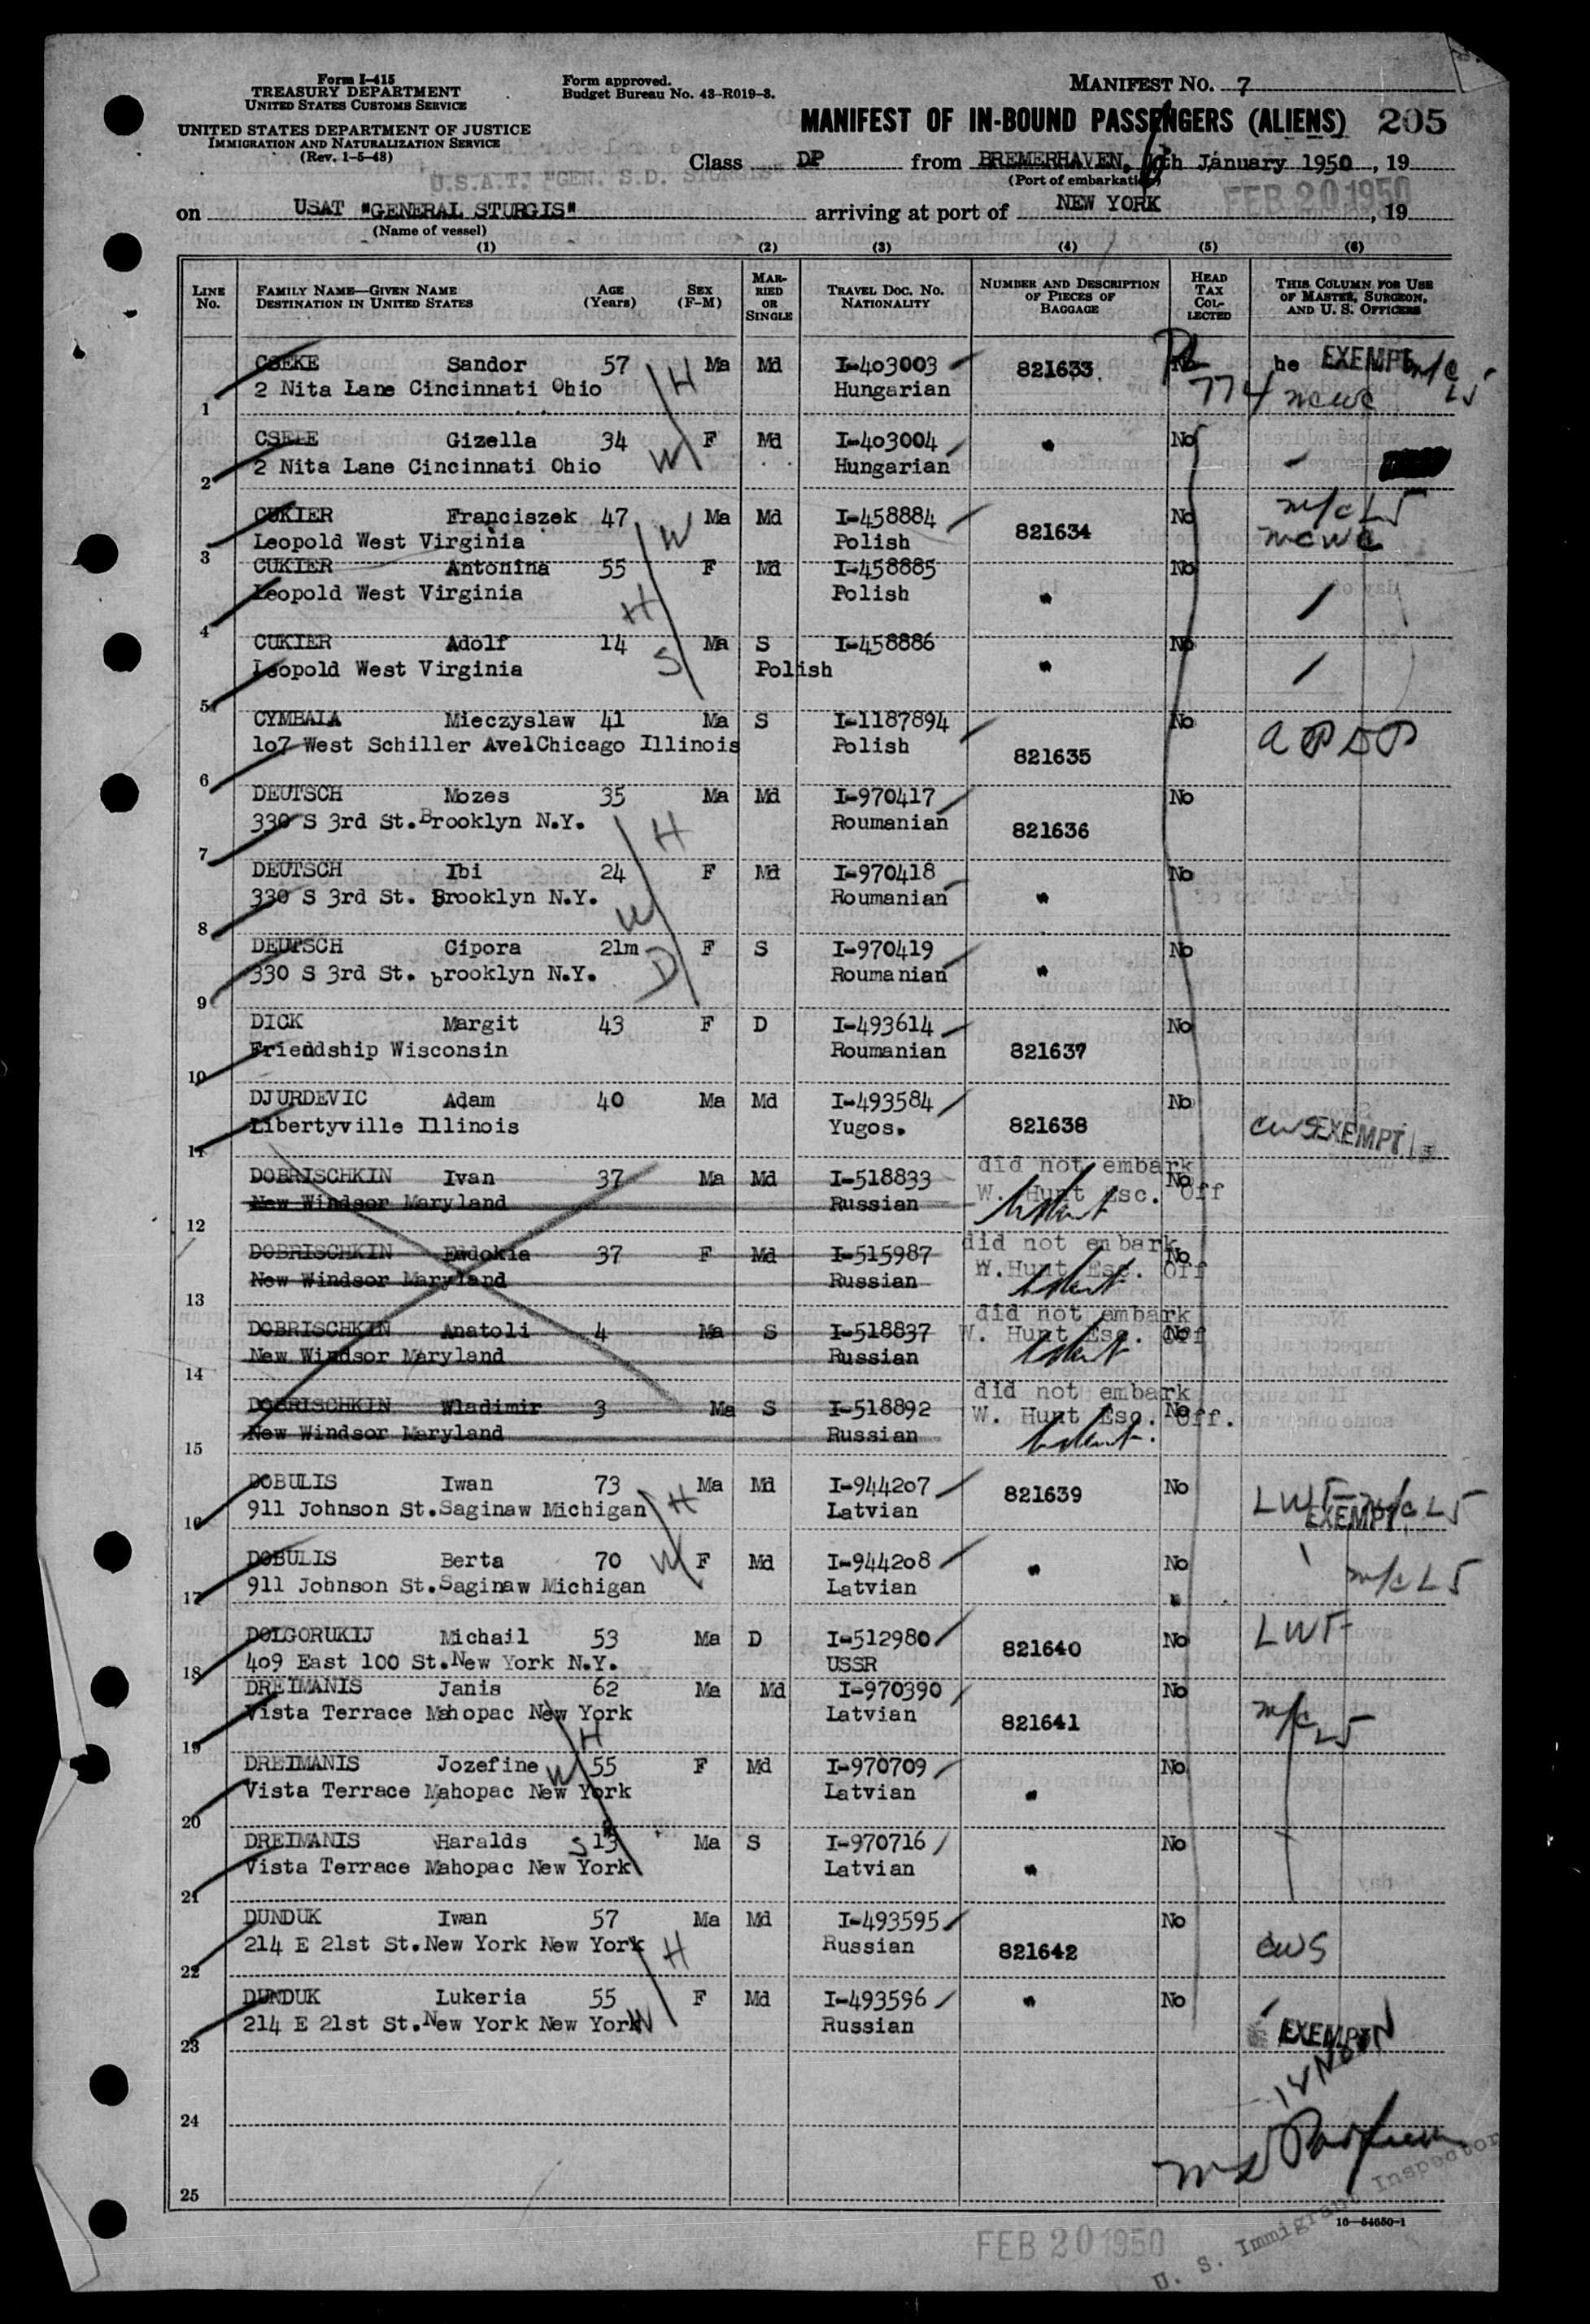 Form I-415
TREASURY DEPARTMENT
UNITED STATES CUSTOMS SERVICE
UNITED STATES DEPARTMENT OF JUSTICE
IMMIGRATION AND NATURALIZATION SERVICE
(Rev. 1-5-48)
Form approved.
Budget Bureau No. 43-R019-3.
MANIFEST NO. 7
MANIFEST OF IN-BOUND PASSENGERS (ALIENS) 205
Class DP from BREMERHAVEN, th January 1950, 19
(Port of embarkation)
U.S.A.T. "GEN. S.D. STURGIS"
FEB 20 1950
on USAT "GENERAL STURGIS" arriving at port of NEW YORK, 19
(Name of vessel)
(1) (2) (3) (4) (5) (6)
LINE No. FAMILY NAME—GIVEN NAME DESTINATION IN UNITED STATES AGE (Years) SEX (F-M) MARRIED OR SINGLE TRAVEL DOC. NO. NATIONALITY NUMBER AND DESCRIPTION OF PIECES OF BAGGAGE HEAD TAX COLLECTED THIS COLUMN FOR USE OF MASTER, SURGEON, AND U. S. OFFICERS
CSEKE Sandor 57 H Ma Md I-403003 821633 he EXEMPT m/c L5
1 2 Nita Lane Cincinnati Ohio Hungarian 774 ncwc
CSEKE Gizella 34 F Md I-403004 " No
2 2 Nita Lane Cincinnati Ohio W Hungarian
CUKIER Franciszek 47 W Ma Md I-458884 821634 No m/c L5
3 Leopold West Virginia Polish ncwc
CUKIER Antonina 55 F Md I-458885 No
4 Leopold West Virginia H Polish "
CUKIER Adolf 14 Ma S I-458886 No
5 Leopold West Virginia S Polish "
CYMBALA Mieczyslaw 41 Ma S I-1187894 No
6 107 West Schiller AvelChicago Illinois Polish 821635
DEUTSCH Mozes 35 Ma Md I-970417 No
7 330 S 3rd St. Brooklyn N.Y. H Roumanian 821636
DEUTSCH Ibi 24 F Md I-970418 No
8 330 S 3rd St. Brooklyn N.Y. W Roumanian "
DEUTSCH Cipora 21m F S I-970419 No
9 330 S 3rd St. brooklyn N.Y. D Roumanian "
DICK Margit 43 F D I-493614 No
10 Friendship Wisconsin Roumanian 821637
DJURDEVIC Adam 40 Ma Md I-493584 No
11 Libertyville Illinois Yugos. 821638 cws EXEMPT
DOBRISCHKIN Ivan 37 Ma Md I-518833 did not embark No
12 New Windsor Maryland Russian W. Hunt Esc. Off
DOBRISCHKIN Ewdokia 37 F Md I-515987 did not embark No
13 New Windsor Maryland Russian W.Hunt Esc. Off
DOBRISCHKIN Anatoli 4 Ma S I-518837 did not embark No
14 New Windsor Maryland Russian W. Hunt Esc. Off
DOBRISCHKIN Wladimir 3 Ma S I-518892 did not embark No
15 New Windsor Maryland Russian W. Hunt Esc. Off.
DOBULIS Iwan 73 H Ma Md I-944207 821639 No LWF m/c L5
16 911 Johnson St.Saginaw Michigan Latvian EXEMPT
DOBULIS Berta 70 W F Md I-944208 " No m/c L5
17 911 Johnson St.Saginaw Michigan Latvian
DOLGORUKIJ Michail 53 Ma D I-512980 821640 No LWF
18 409 East 100 St.New York N.Y. USSR
DREIMANIS Janis 62 Ma Md I-970390 No
19 Vista Terrace Mahopac New York H Latvian 821641 m/c L5
DREIMANIS Jozefine W 55 F Md I-970709 No
20 Vista Terrace Mahopac New York Latvian "
DREIMANIS Haralds S 13 Ma S I-970716 No
21 Vista Terrace Mahopac New York Latvian "
DUNDUK Iwan 57 Ma Md I-493595 No
22 214 E 21st St.New York New York H Russian 821642 cws
DUNDUK Lukeria 55 F Md I-493596 " No
23 214 E 21st St.New York New York W Russian EXEMPT
24
25
16—54650-1
FEB 20 1950
U. S. Immigrant Inspector